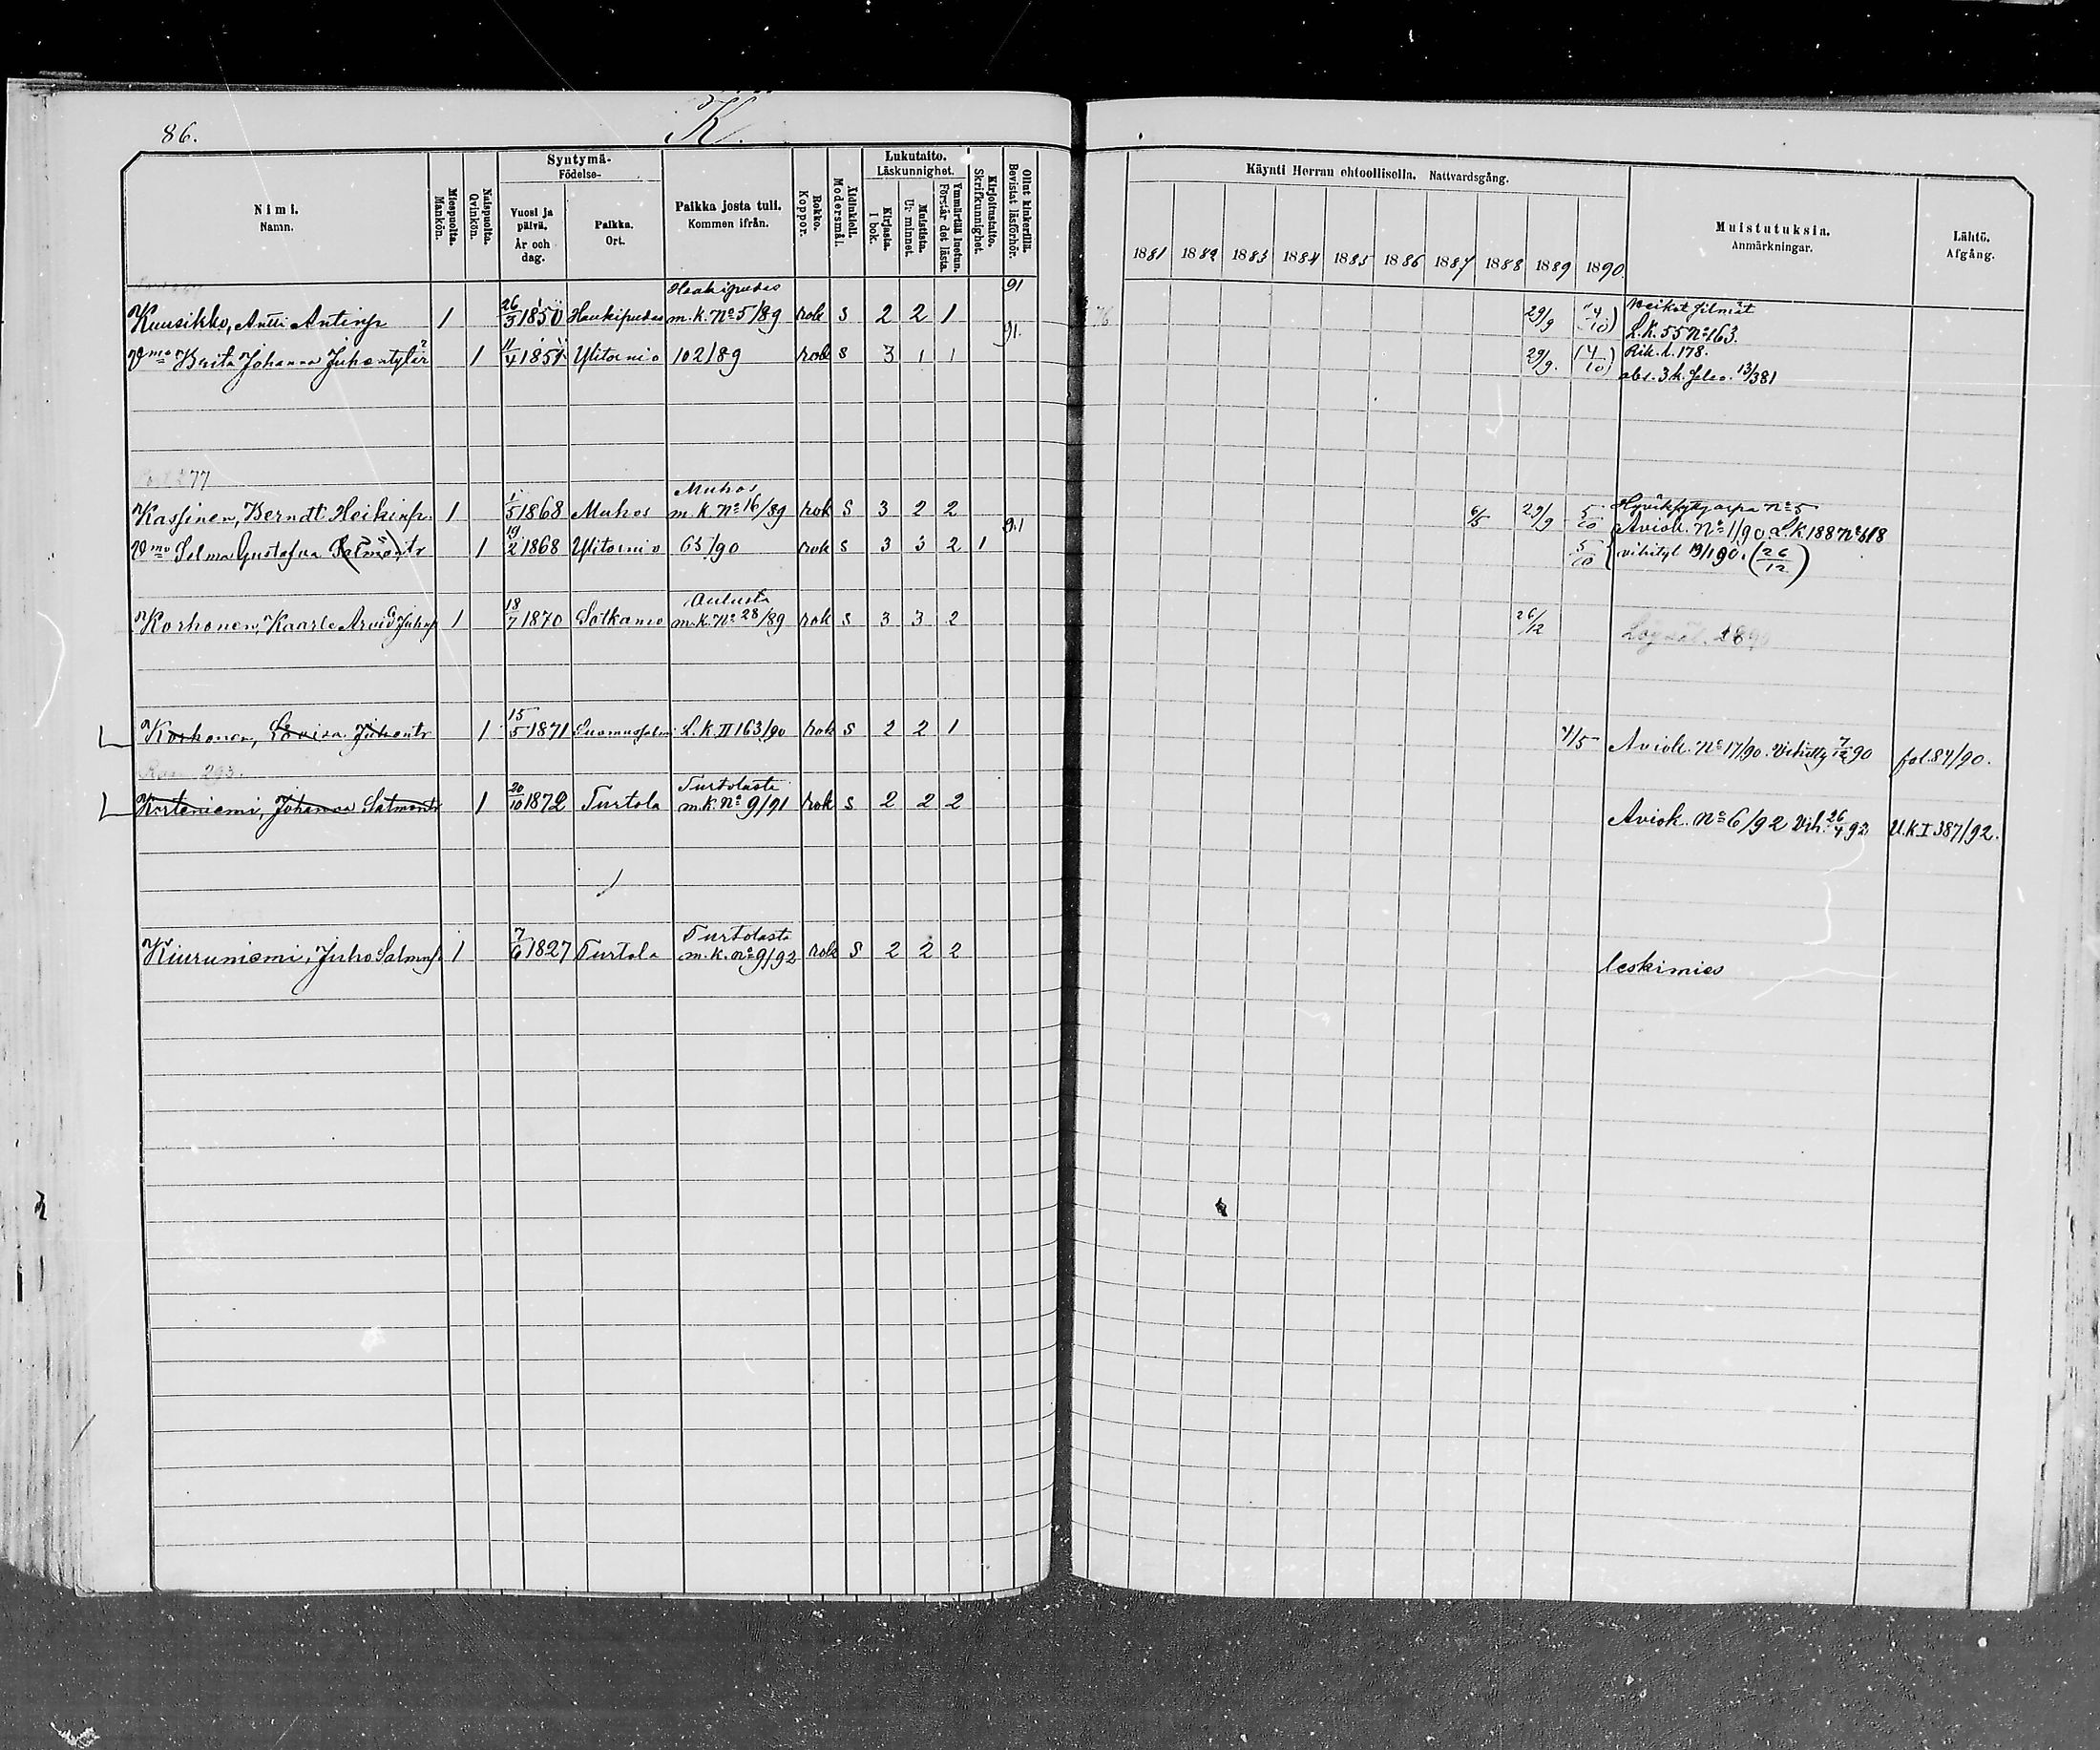 86.
K.
Nimi. Namn.
Miespuolta. Mankön.
Naispuolta. Qvinkön.
Syntymä- Födelse-
Vuosi ja päivä. År och dag.
Paikka. Ort.
Paikka josta tuli. Kommen ifrån.
Rokko. Koppor.
Äidinkieli. Modersmål.
Lukutaito. Läskunnighet.
Kirjasta. I bok.
Muistista. Ur minnet.
Ymmärtää luetun. Förstår det lästa.
Kirjoitustaito. Skrifkunnighet.
Ollut kinkerillä. Bevistat läsförhör.
Käynti Herran ehtoollisella. Nattvardsgång.
1881 1882 1883 1884 1885 1886 1887 1888 1889 1890
Muistutuksia. Anmärkningar.
Lähtö. Afgång.
Haukipudas 91
Kuusikko, Antti Antinp 1 26/3 1850 Haukipudas m.k. No 5/89 rok s 2 2 1 29/9 (4/10)
L.K. 55 No 163.
91.
Vmo Brita Johanna Juhontytär 1 11/4 1851 Ylitornio 102/89 rok s 3 1 1 29/9. (4/10) Rik. l. 178.
13/381
277
Muhos
Kassinen, Berndt Heikinp. 1 1/5 1868 Muhos m.k. No 16/89 rok s 3 2 2 6/5 29/9 5/10 No 5
91 Aviok. No 1/90 L.K. 188 No 618
Vmo Selma Gustafva Salmontr 1 19/2 1868 Ylitornio 65/90 rok s 3 3 2 1 5/10 vihityt 19/1 90. (26/12)
Korhonen, Kaarle Arvid Juhop 1 18/7 1870 Sotkamo m.k. No 28/89 rok s 3 3 2 26/12
Korhonen, Lovisa Juhontr 1 15/5 1871 L.K. II 163/90 rok s 2 2 1 1/5 Aviok. No 17/90. Vihitty 7/12 90 fol. 87/90.
293.
Turtolasta
Korteniemi, Johanna Salmontr 1 20/10 1872 Turtola m.k. No 9/91 rok s 2 2 2 Aviok. No 6/92 Vih. 26/4 92 U.K I 387/92.
Turtolasta
Kiuruniemi, Juho Salmup 1 7/6 1827 Turtola m.k. No 9/92 rok s 2 2 2 leskimies